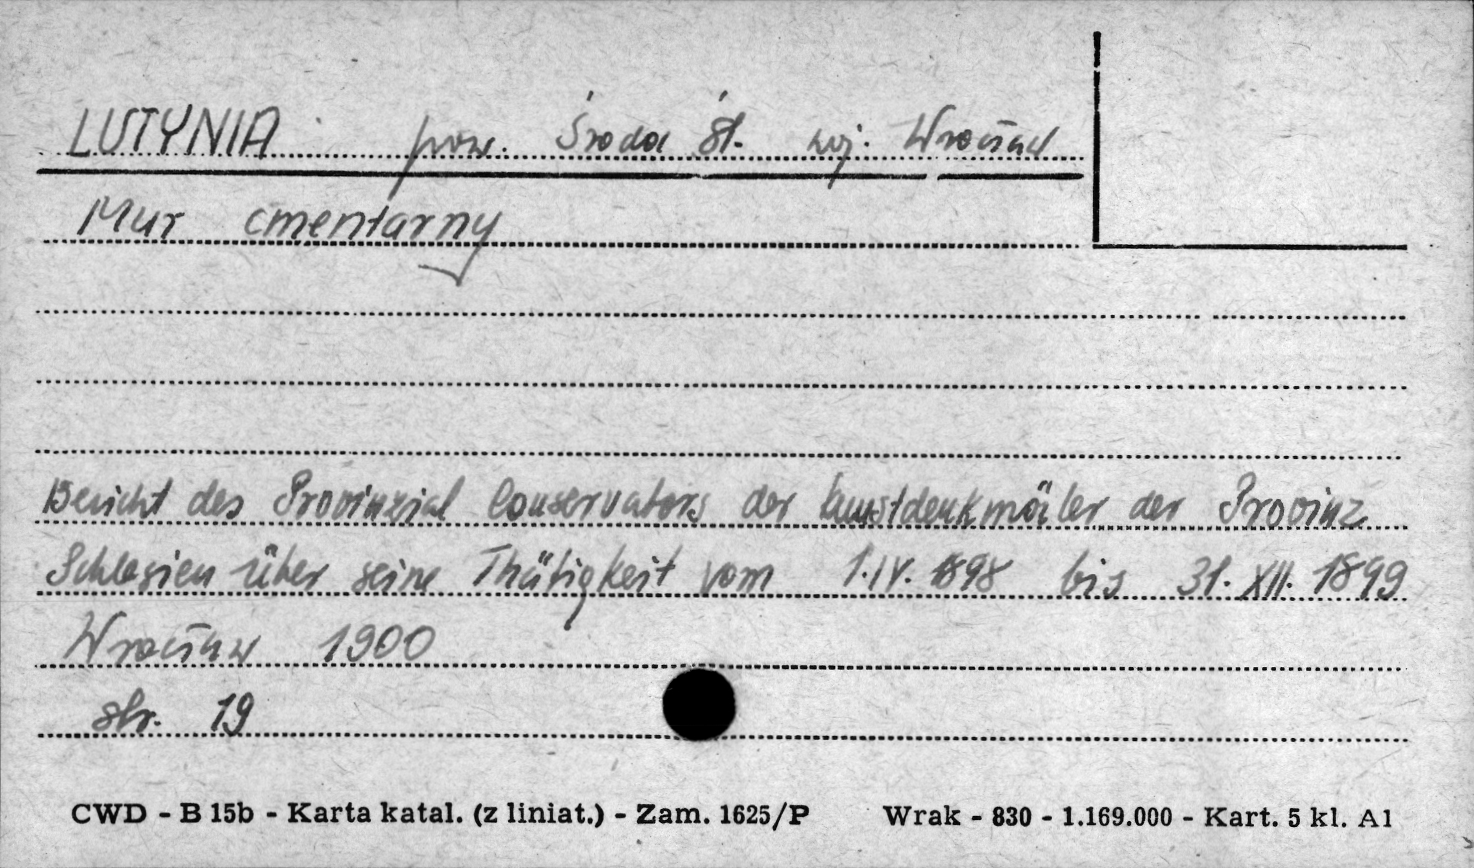 LUTYNIA pow. Środa Śl. woj. Wrocław
Mur cmentarny
Bericht des Provinzial Conservators der Kunstdenkmäler der Provinz
Schlesien über seine Thätigkeit vom 1.IV. 1898 bis 31. XII. 1899
Wrocław 1900
str. 19
CWD - B 15b - Karta katal. (z liniat.) - Zam. 1625/P Wrak - 830 - 1.169.000 - Kart. 5 kl. A1